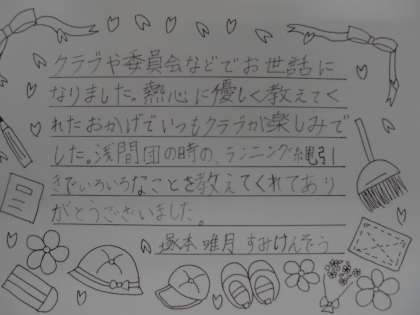 クラブや委員会などでお世話に
なりました。熱心に優しく教えてく
れたおかげでいつもクラブが楽しみで
した。浅間団の時の、ランニング縄引
きでいろいろなことを教えてくれてあり
がとうございました。
塚本 唯月 すみけんぞう